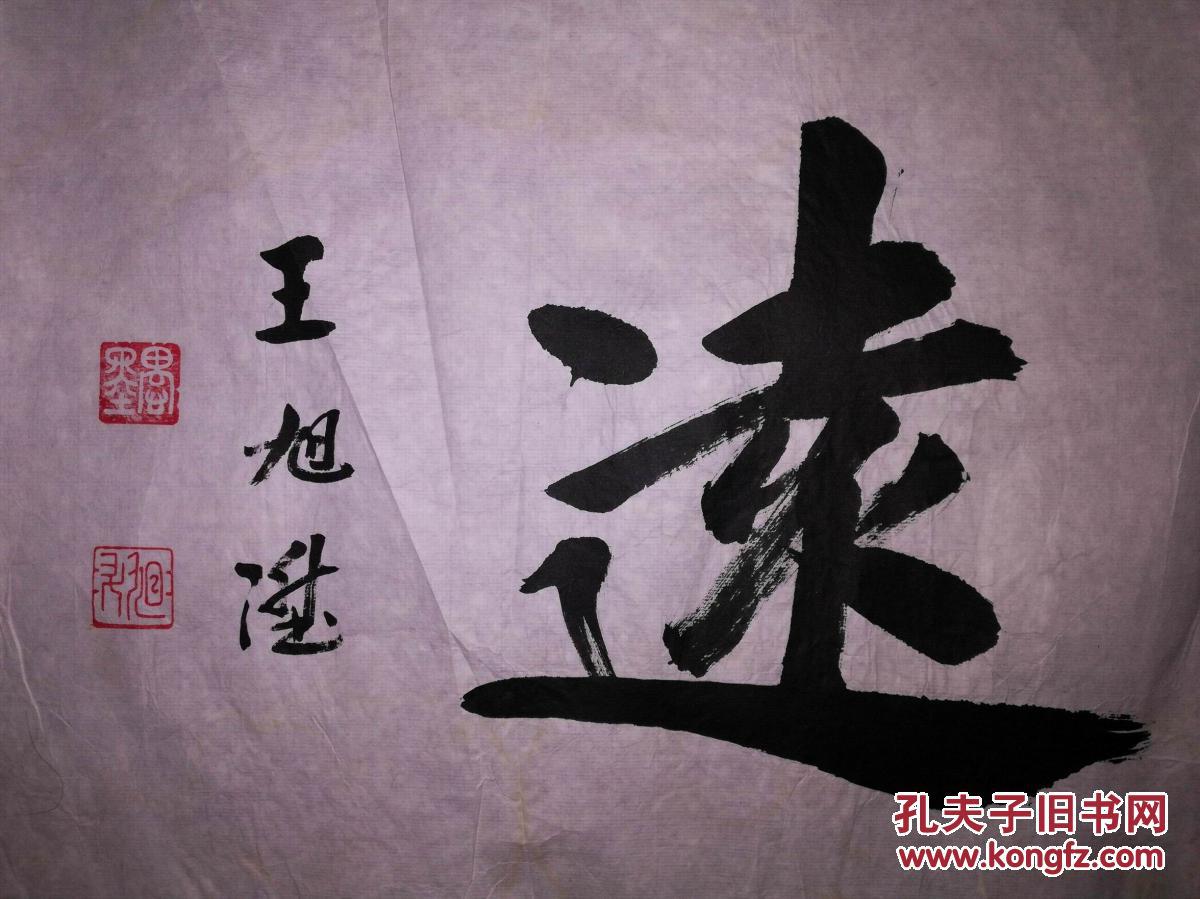 遠
王旭陞
孔夫子旧书网
www.kongfz.com